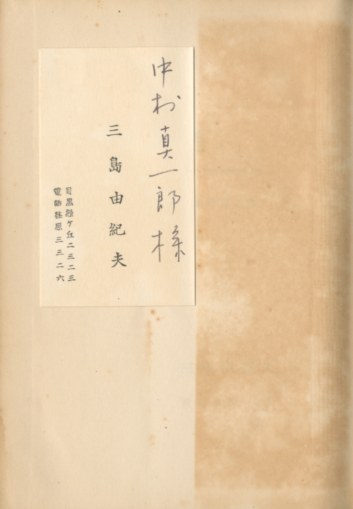 中村真一郎様
三島由紀夫
目黒緑ケ丘二三二三
電話荏原三三二六